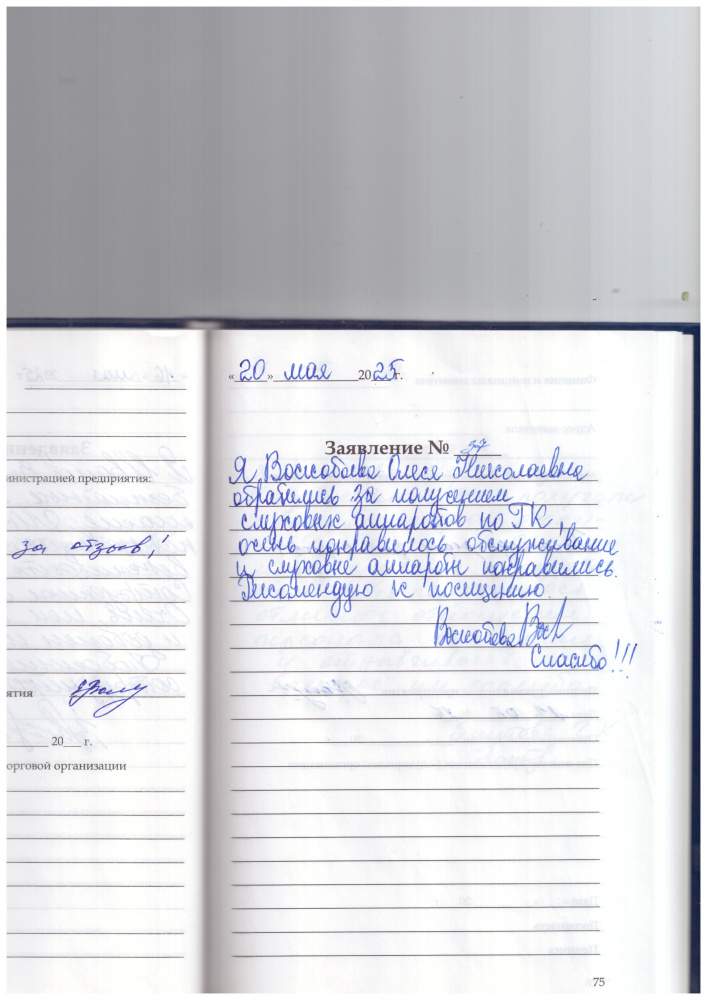 нистрацией предприятия:
за отзыв!
ятия
20 г.
орговой организации
«20» мая 2025г.
Заявление № 37
Я Воскобоева Олеся Николаевна
обратились за получением
слуховых аппаратов по ГК,
очень понравилось обслуживание
и слуховые аппараты понравились.
Рекомендую к посещению.
Воскобоева
Спасибо!!!
75